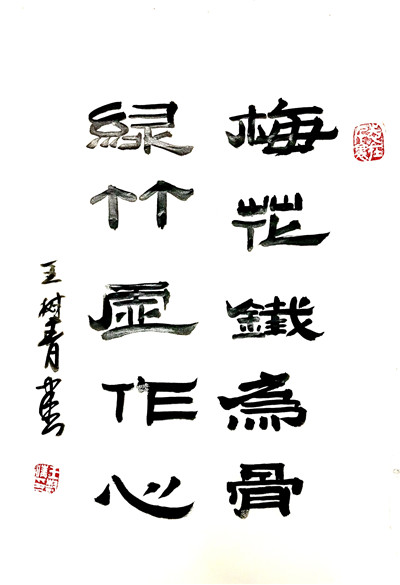 梅花鐵為骨
綠竹虛作心
王樹青書